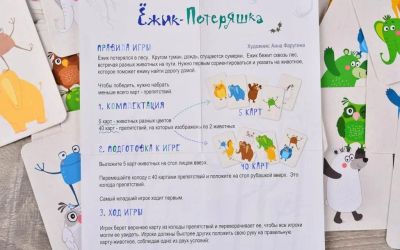 Ёжик-Потеряшка
Художник: Анна Фарутина
ПРАВИЛА ИГРЫ
Ежик потерялся в лесу. Кругом туман, дождь, сгущаются сумерки. Ежик бежит сквозь лес,
встречая разных животных на пути. Нужно первым сориентироваться и указать на животное,
которое поможет ежику найти дорогу домой.
Чтобы победить, нужно набрать
меньше всего карт - препятствий.
1. КОМПЛЕКТАЦИЯ
5 карт - животные разных цветов
40 карт - препятствий, на которых изображены по 2 животных
5 КАРТ
2. ПОДГОТОВКА К ИГРЕ
40 КАРТ
Выложите 5 карт-животных на стол лицом вверх.
Перемешайте колоду с 40 картами препятствий и положите на стол рубашкой вверх. Это
колода препятствий.
Самый младший игрок ходит первым.
3. ХОД ИГРЫ
Игрок берет верхнюю карту из колоды препятствий и переворачивает ее, чтобы все игроки
могли ее увидеть. Игроки должны быстрее других положить свою руку на правильную
карту-животное, соблюдая одно из двух условий: